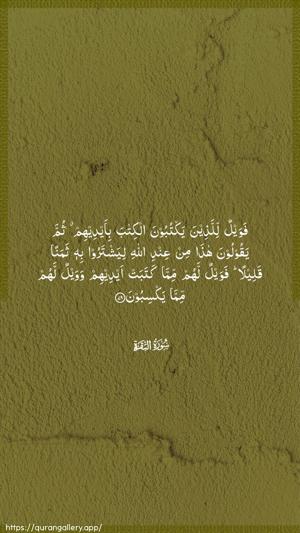 فَوَيْلٌ لِّلَّذِيْنَ يَكْتُبُوْنَ الْكِتٰبَ بِاَيْدِيْهِمْ ۗ ثُمَّ
يَقُوْلُوْنَ هٰذَا مِنْ عِنْدِ اللّٰهِ لِيَشْتَرُوْا بِهٖ ثَمَنًا
قَلِيْلًا ۗ فَوَيْلٌ لَّهُمْ مِّمَّا كَتَبَتْ اَيْدِيْهِمْ وَوَيْلٌ لَّهُمْ
مِّمَّا يَكْسِبُوْنَ ﴿٧٩﴾
سُوْرَةُ الْبَقَرَة
https://qurangallery.app/